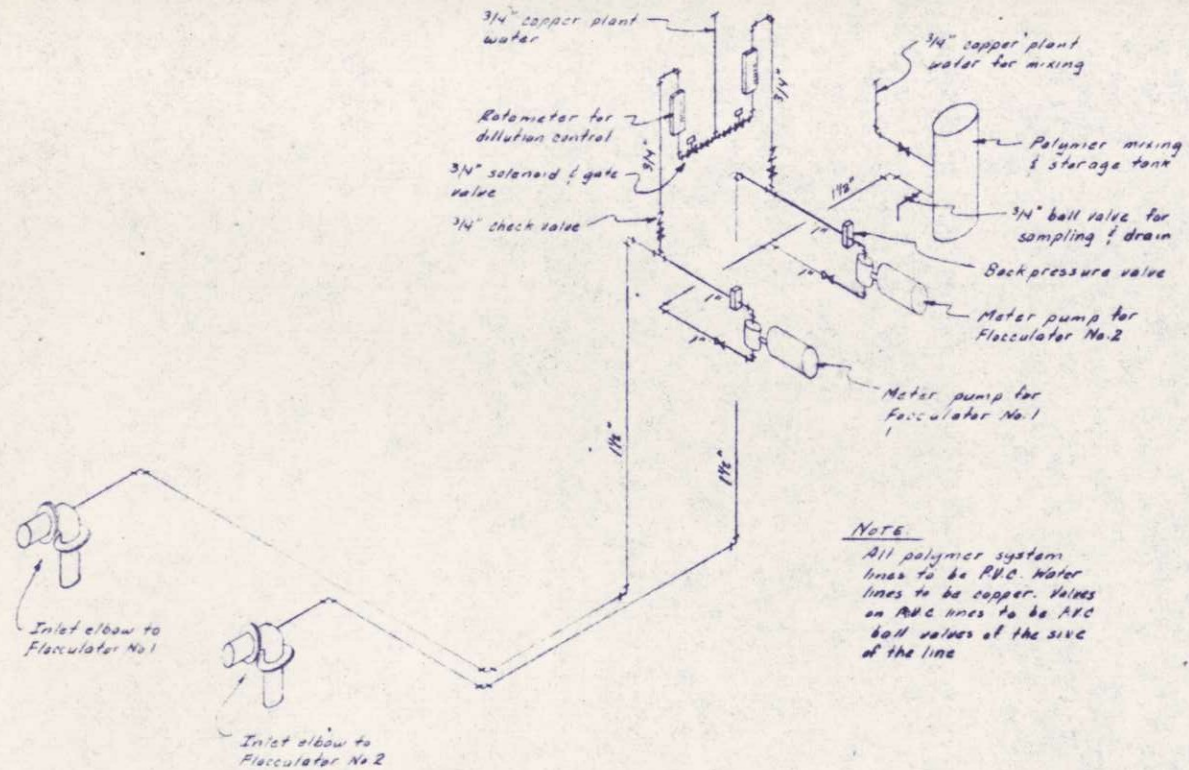 3/4" copper plant
water
3/4" copper plant
water for mixing
3/4"
Rotometer for
dillution control
3/4"
Polymer mixing
& storage tank
3/4" solenoid & gate
valve
1 1/2"
3/4" check valve
3/4" ball valve for
sampling & drain
1"
Backpressure valve
1"
1"
Meter pump for
Flocculator No. 2
1"
Meter pump for
Focculator No. 1
1 1/2"
1 1/2"
NOTE:
All polymer system
lines to be P.V.C. Water
lines to be copper. Valves
on P.V.C. lines to be P.V.C
ball valves of the size
of the line
Inlet elbow to
Flocculator No 1
Inlet elbow to
Flocculator No 2